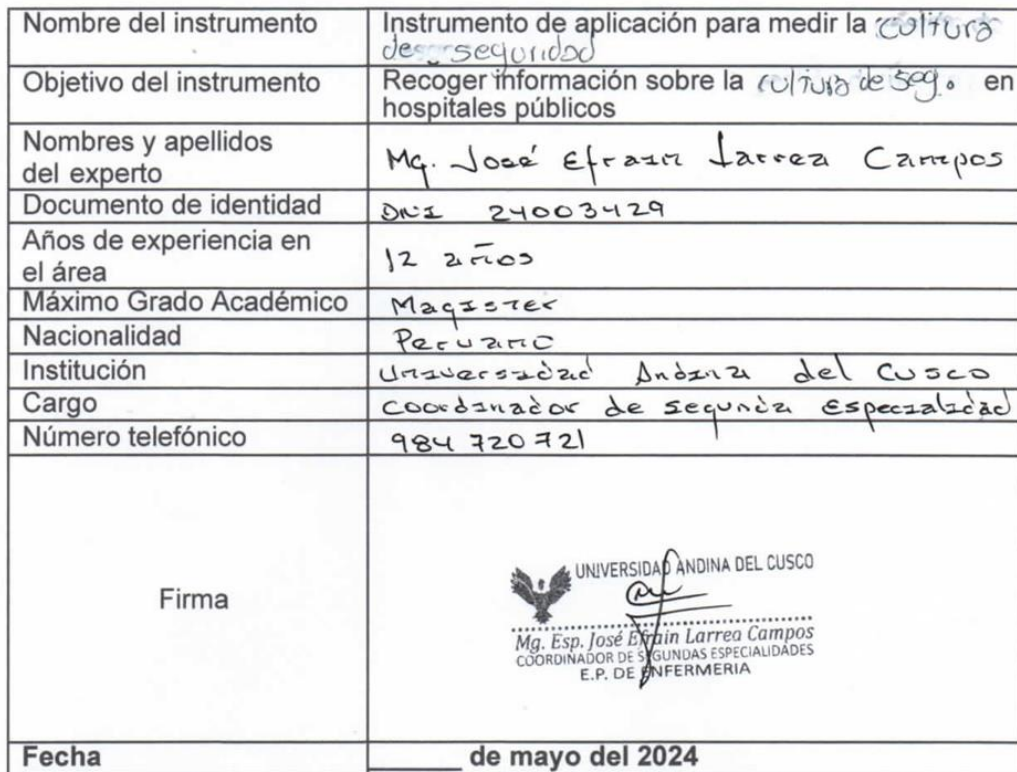 Nombre del instrumento
Instrumento de aplicación para medir la cultura
de seguridad
Objetivo del instrumento
Recoger información sobre la cultura de seg. en
hospitales públicos
Nombres y apellidos
del experto
Mg. José Efrain Larrea Campos
Documento de identidad
DNI 24003429
Años de experiencia en
el área
12 años
Máximo Grado Académico
Magister
Nacionalidad
Peruano
Institución
Universidad Andina del Cusco
Cargo
Coordinador de Segunda Especialidad
Número telefónico
984 720 721
Firma
UNIVERSIDAD ANDINA DEL CUSCO
Mg. Esp. José Efrain Larrea Campos
COORDINADOR DE SEGUNDAS ESPECIALIDADES
E.P. DE ENFERMERIA
Fecha
______ de mayo del 2024